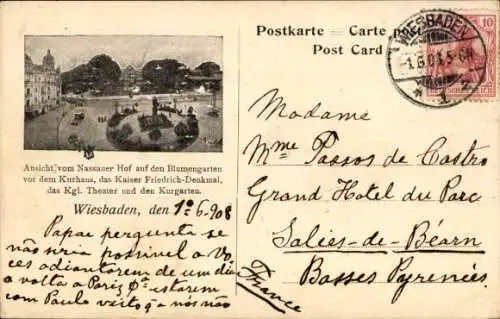 Postkarte = Carte postale
Post Card
WIESBADEN
1.6.03. 5-6N
1
10
DEUTSCHES REICH
Ansicht vom Nassauer Hof auf den Blumengarten
vor dem Kurhaus, das Kaiser Friedrich-Denkmal,
das Kgl. Theater und den Kurgarten.
Wiesbaden, den 1º-6-903
Papae pergunta se
não seria possivel a Vo
ces adiantarem de um dia
a volta a Pariz pª estarem
com Paulo visto q nós não
Madame
Mme Passos de Castro
Grand Hotel du Parc
Salies-de-Béarn
Basses Pyrenées
France